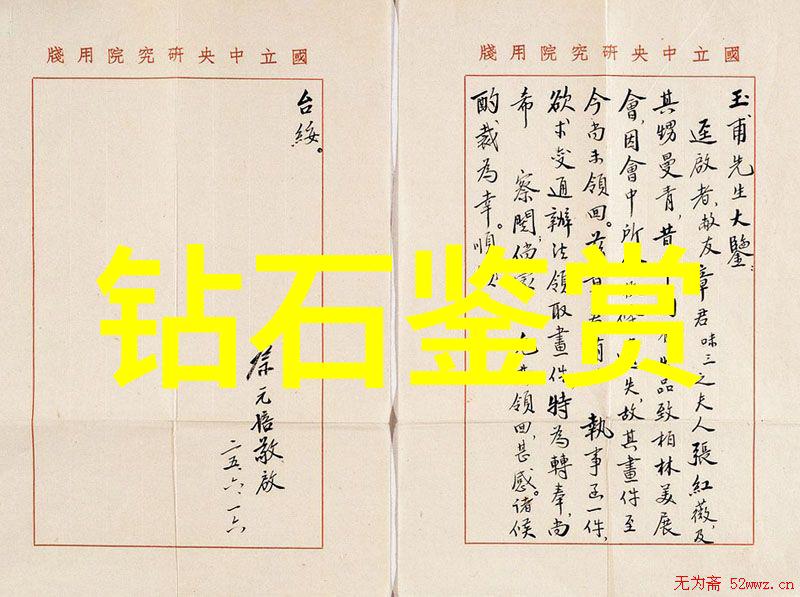 國立中央研究院用牋
玉甫先生大鑒：
逕啟者，敝友章君味三之夫人張紅薇，及
其甥曼青，昔 品致柏林美展
會，因會中所 失，故其畫件至
今尚未領回。茲 執事函一件，
欲求變通辦法領取畫件，特為轉奉，尚
希 察閱，倘 領回，甚感。諸候
酌裁為幸。順
國立中央研究院用牋
台綏。
蔡元培敬啟
二五、六、一六
钻石鉴赏
无为斋 52wwz.cn